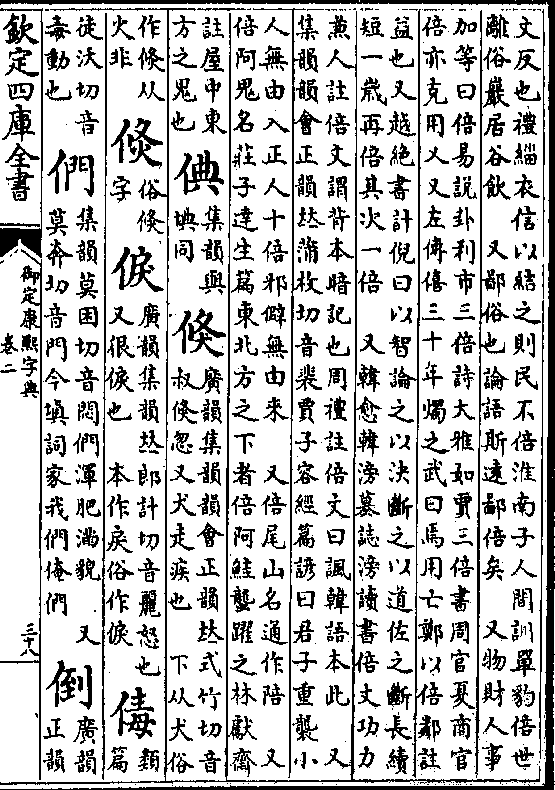 文反也禮緇衣信以結之則民不倍淮南子人間訓單豹倍世
離俗巖居谷飲 又鄙俗也論語斯遠鄙倍矣 又物財人事
加等曰倍易說卦利市三倍詩大雅如賈三倍書周官夏商官
倍亦克用乂又左傳僖三十年燭之武曰焉用亡鄭以倍鄰註
益也又越絕書計倪曰以智論之以決斷之以道佐之斷長續
短一歲再倍其次一倍 又韓愈韓滂墓誌滂讀書倍文功力
兼人註倍文謂背本暗記也周禮註倍文曰諷韓語本此 又
集韻韻會正韻𠀤蒲枚切音裴賈子容經篇諺曰君子重襲小
人無由入正人十倍邪僻無由來 又倍尾山名通作陪 又
倍阿鬼名莊子達生篇東北方之下者倍阿鮭蠪躍之林獻齋
註屋中東
方之鬼也
倎
集韻與
㥏同
倏
廣韻集韻韻會正韻𠀤式竹切音
叔倏忽又犬走疾也 下从犬俗
作倐从
火非
倐
俗倏
字
㑦
廣韻集韻𠀤郎計切音麗怒也
又很㑦也 本作戾俗作㑦
類
篇
徒沃切音
毒動也
們
集韻莫困切音悶們渾肥滿貌 又
莫奔切音門今塡詞家我們俺們
倒
廣韻
正韻
欽定四庫全書
御定康熙字典
卷二
三十八